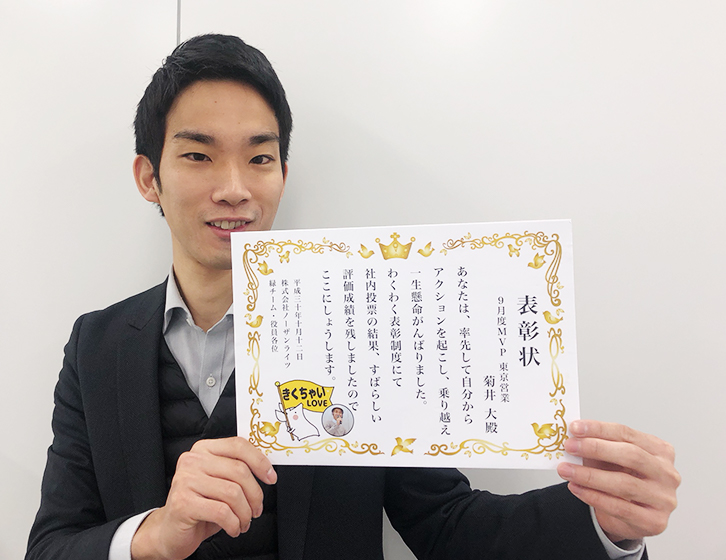 表彰状
９月度ＭＶＰ 東京営業
菊井 大殿
あなたは、率先して自分から
アクションを起こし、乗り越え
一生懸命がんばりました。
わくわく表彰制度にて
社内投票の結果、すばらしい
評価成績を残しましたので
ここにしょうします。
平成三十年十月十二日
株式会社ノーザンライツ
緑チーム・役員各位
きくちゃい
LOVE